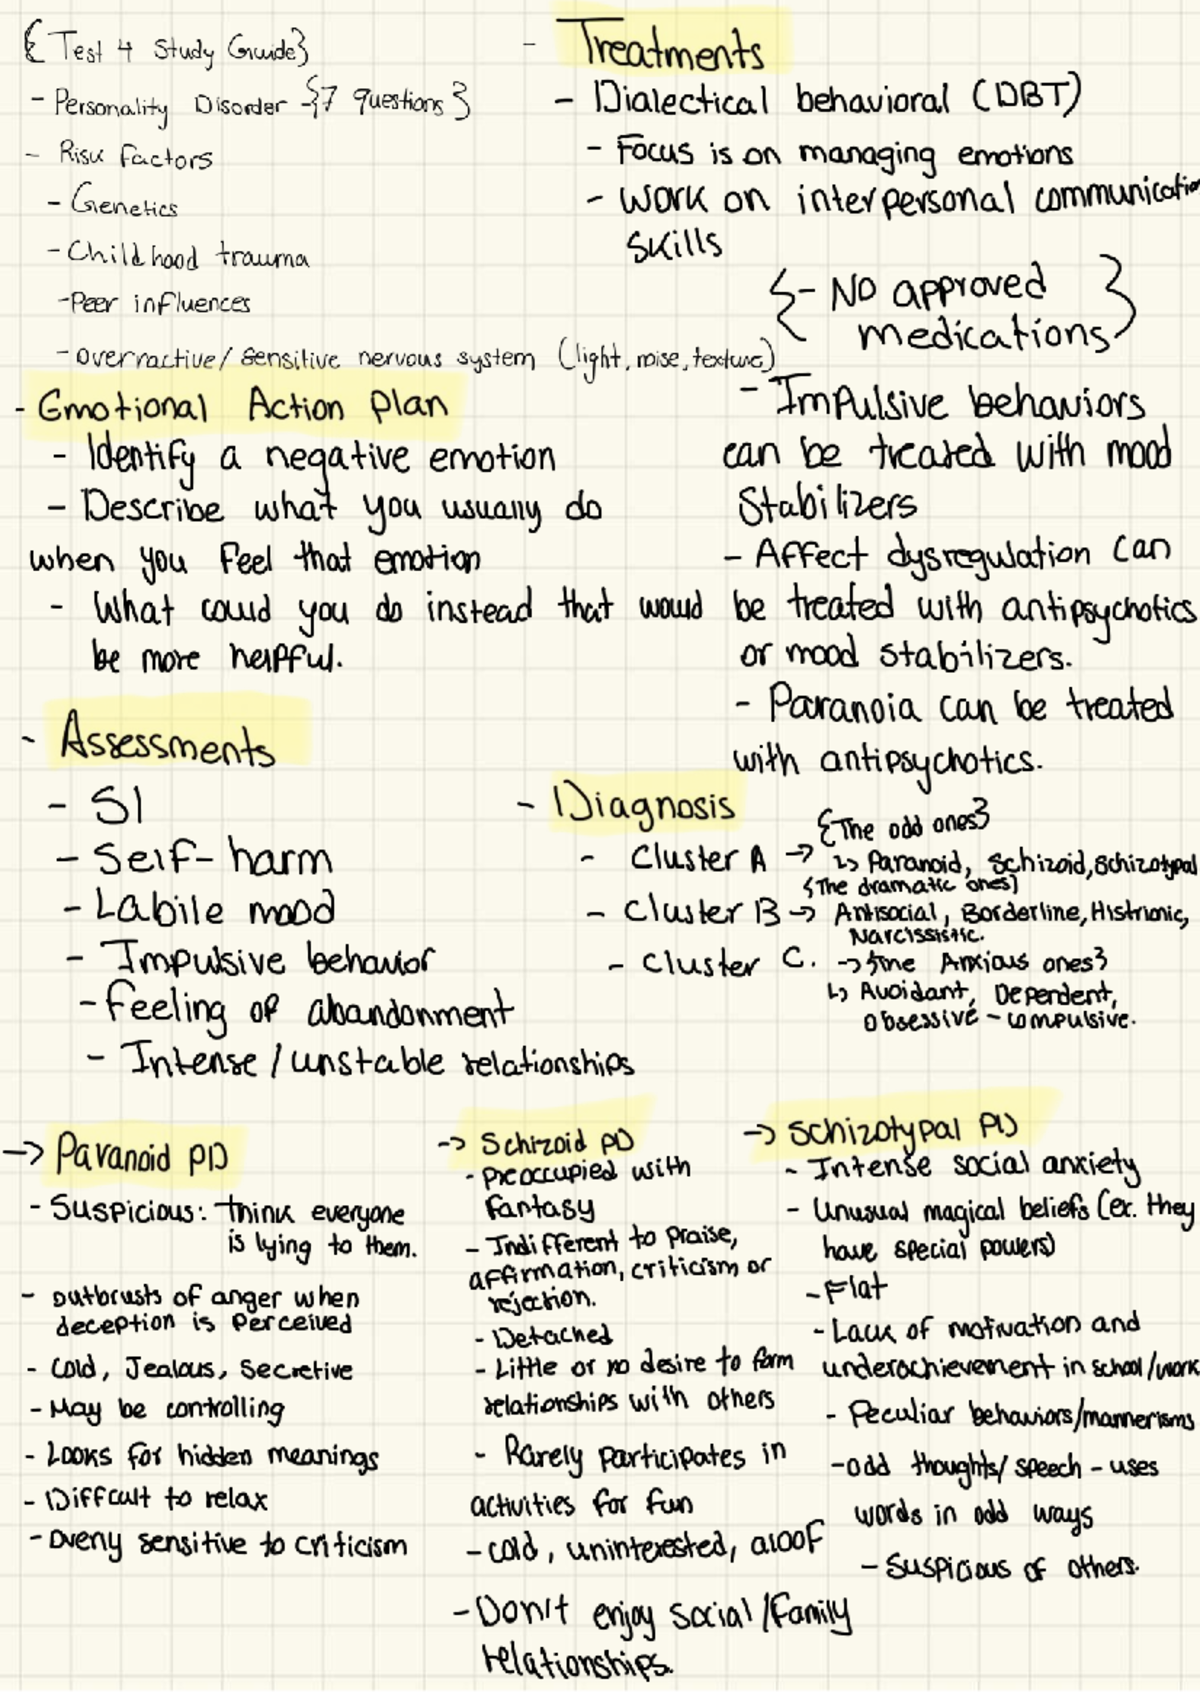 {Test 4 Study Guide}
- Personality Disorder -{7 questions}
- Risk factors
- Genetics
- Childhood trauma
- Peer influences
- overractive/ sensitive nervous system (light, noise, texture)
- Emotional Action plan
- Identify a negative emotion
- Describe what you usually do
when you feel that emotion
- What could you do instead that would
be more helpful.
- Assessments
- SI
- Self-harm
- Labile mood
- Impulsive behavior
- Feeling of abandonment
- Intense/unstable relationships
- Treatments
- Dialectical behavioral (DBT)
- Focus is on managing emotions
- Work on interpersonal communication
skills
{- No approved
medications}
- Impulsive behaviors
can be treated with mood
Stabilizers
- Affect dysregulation can
be treated with antipsychotics
or mood stabilizers.
- Paranoia can be treated
with antipsychotics.
- Diagnosis
{The odd ones}
- Cluster A → ↳ Paranoid, Schizoid, Schizotypal
{The dramatic ones}
- Cluster B → Antisocial, Borderline, Histrionic,
Narcissistic.
- Cluster C. → {The Anxious ones}
↳ Avoidant, Dependent,
Obsessive-compulsive.
→ Paranoid PD
- Suspicious: think everyone
is lying to them.
- outbrusts of anger when
deception is perceived
- Cold, Jealous, Secretive
- May be controlling
- Looks for hidden meanings
- Difficult to relax
- Overly sensitive to criticism
→ Schizoid PD
- preoccupied with
fantasy
- Indifferent to praise,
affirmation, criticism or
rejection.
- Detached
- Little or no desire to form
relationships with others
- Rarely participates in
activities for fun
- cold, uninterested, aloof
- Don't enjoy social/family
relationships.
→ Schizotypal PD
- Intense social anxiety
- Unusual magical beliefs (ex. they
have special powers)
- Flat
- Lack of motivation and
underachievement in school/work
- Peculiar behaviors/mannerisms
- odd thoughts/speech - uses
words in odd ways
- Suspicious of others.